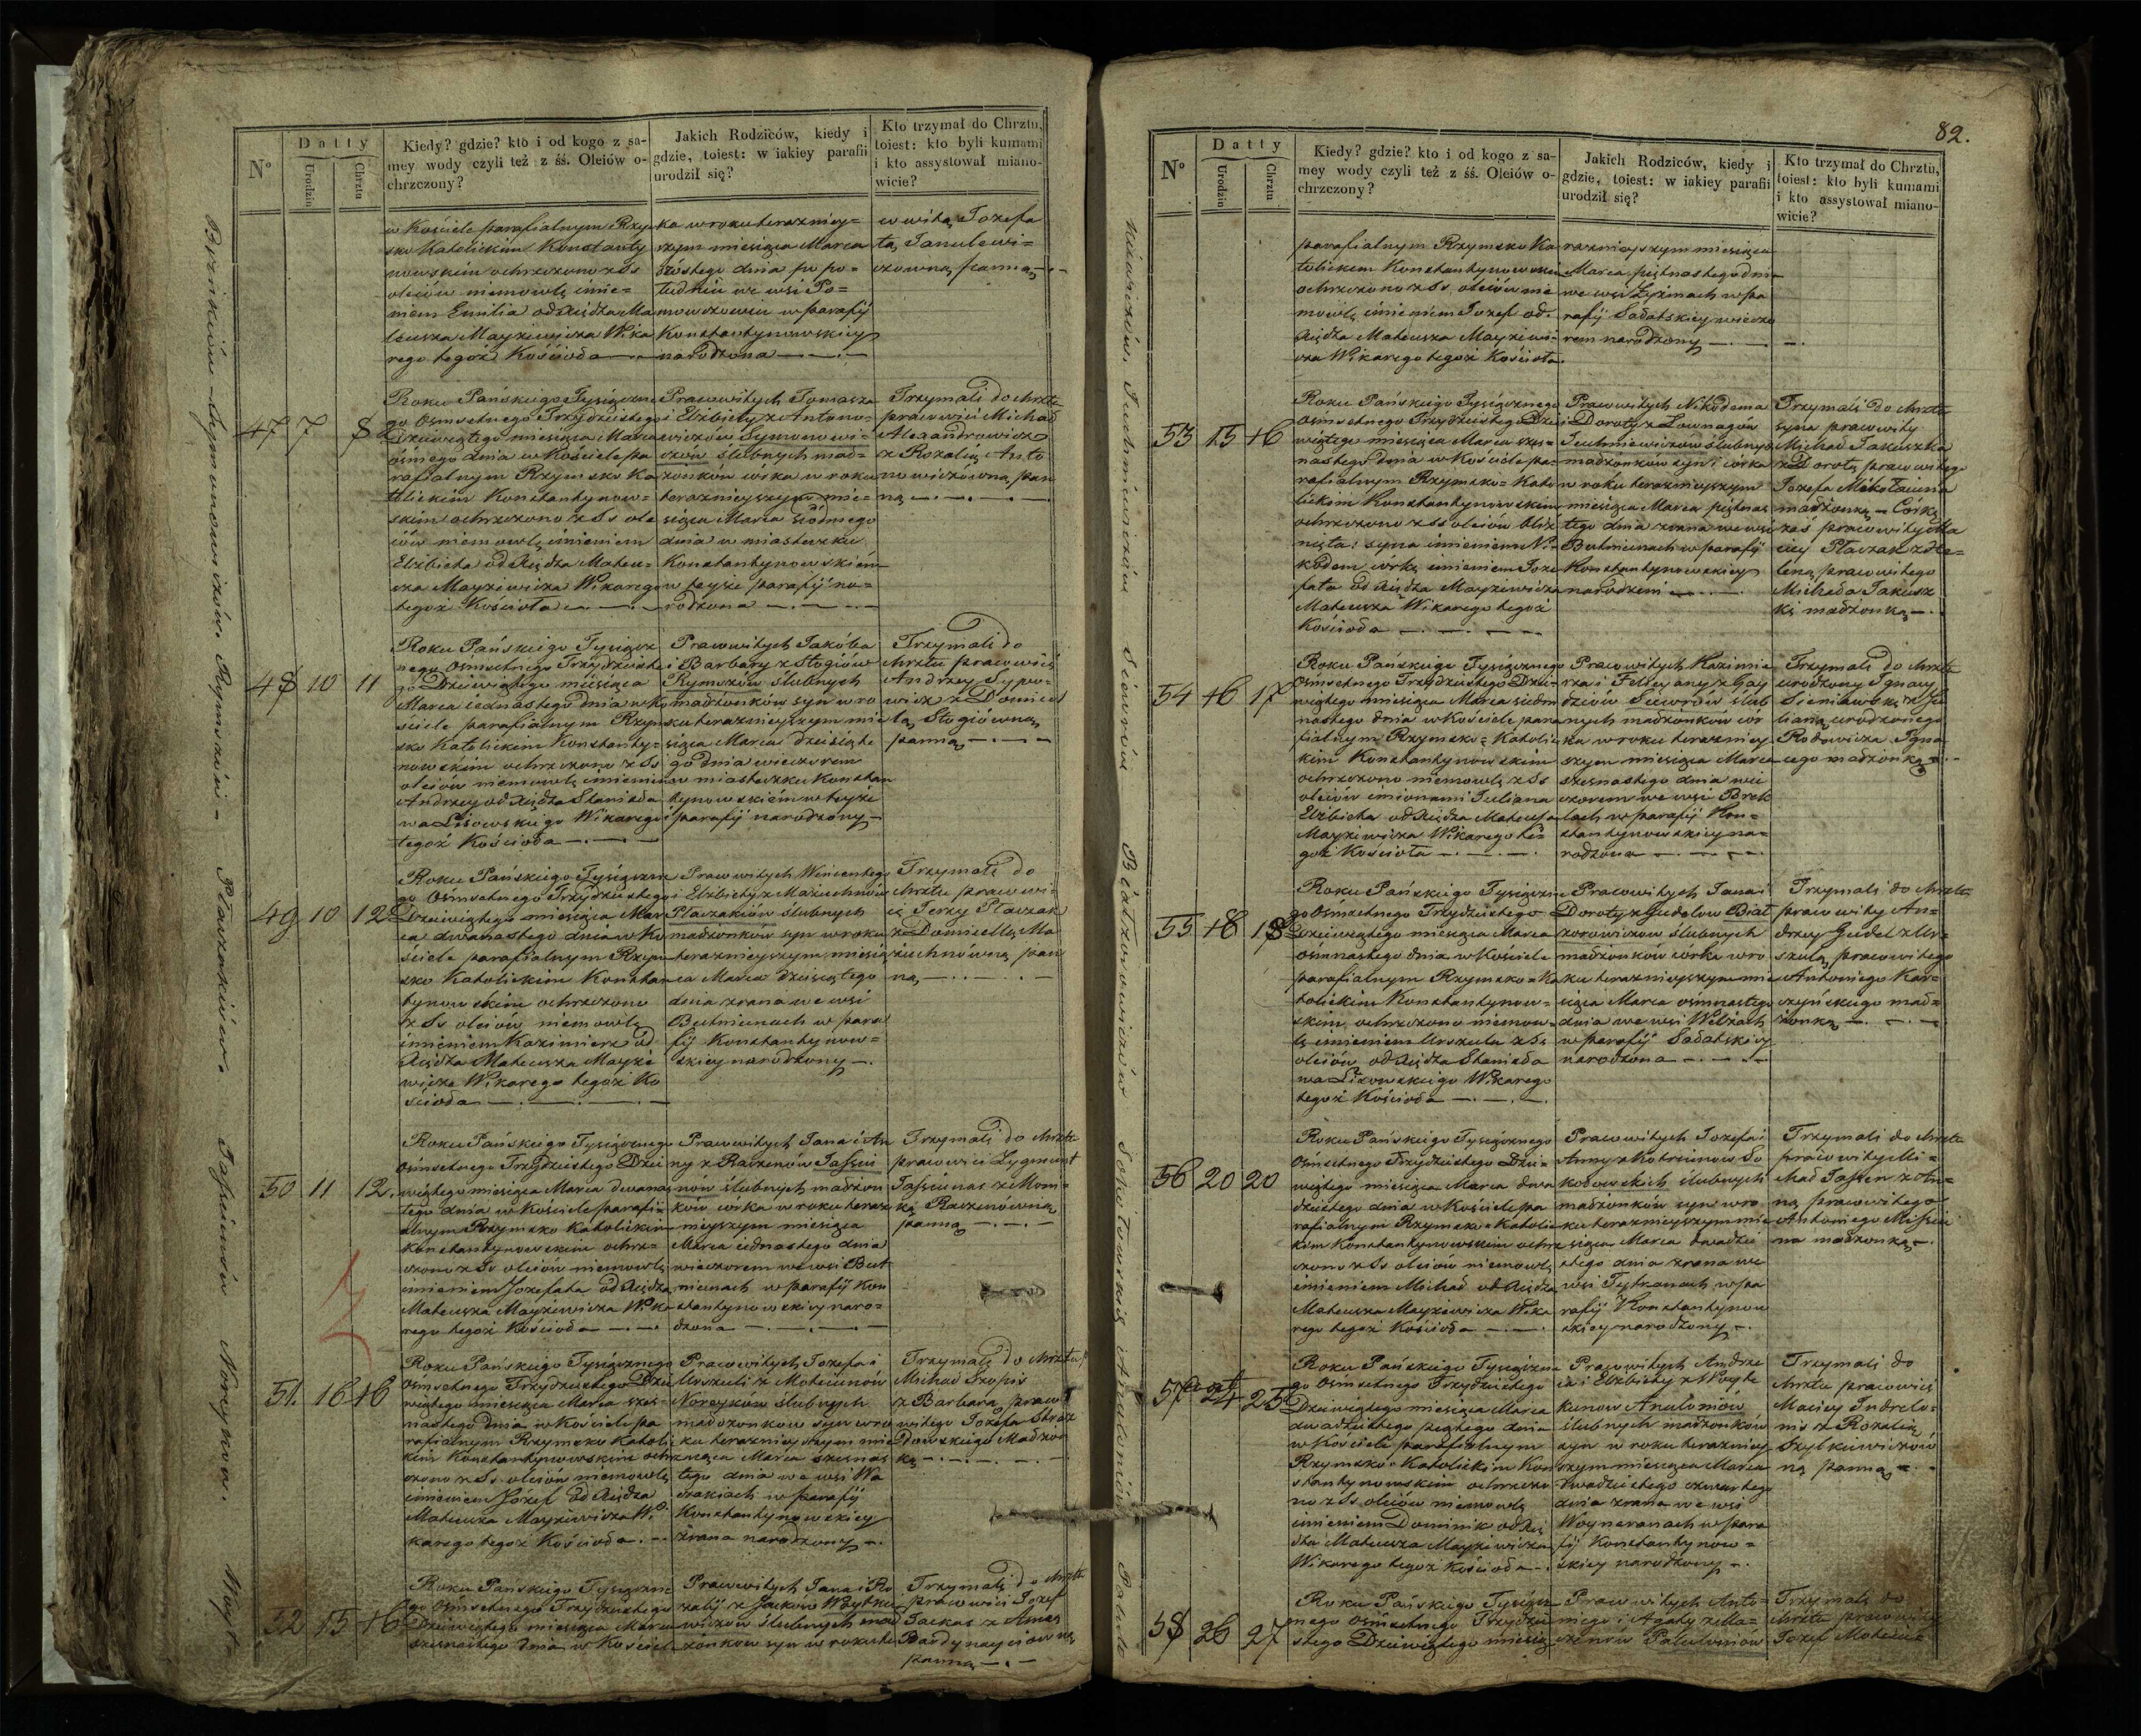 N°
Datty
Urodzin
Chrztu
Kiedy? gdzie? kto i od kogo z sa-
mey wody czyli też z śś. Oleiów o-
chrzczony?
Jakich Rodziców, kiedy i
gdzie, toiest: w iakiey parafii
urodził się?
Kto trzymał do Chrztu,
toiest: kto byli kumami
i kto assystował miano-
wicie?
w Kościele parafialnym Rzym
sko Katolickim Konstanty
nowskim ochrzczono z Ss
oleiów niemowle imie=
niem Emilia od Xiędza Ma
teusza Mayziewicza Wika
rego tegoż Kościoła
ka w roku terazniey=
szym miesiąca Marca
szóstego dnia po po=
łudniu we wsi Po=
w parafij
Konstantynowskiey
narodzona
witą Jozefa
tą Janulewi=
czowną panną
47 7 8
Roku Pańskiego Tysiączne
go Osmsetnego Trzydziestego
Dziewiątego miesiąca Marca
ósmego dnia w Kościele pa
rafialnym Rzymsko Ka
tolickim Konstantynow=
skim ochrzczono z Ss ole
iów niemowle imieniem
Elżbieta od Xiędza Mateu=
sza Mayziewicza Wikarego
tegoż Kościoła
Prawowitych Tomasza
i Elżbiety z Antono=
wiczów Symonowi=
czów ślubnych mał=
żonków córka w roku
teraznieyszym mie=
siąca Marca siódmego
dnia w miasteczku
Konstantynowskiém
w teyże parafij na=
rodzona
Trzymali do chrztu
prawowici Michał
Alexandrowicz
z Rozalią Anto
nowiczówną pan
ną
48 10 11
Roku Pańskiego Tysiącz
nego Osmsetnego Trzydzieste
go Dziewiątego miesiąca
Marca iednastego dnia w Ko
ściele parafialnym Rzym
sko Katolickim Konstanty=
nowskim ochrzczono z Ss
oleiów niemowle imieniem
Andrzey od Xiędza Stanisła
wa Lisowskiego Wikarego
tegoż Kościoła
Prawowitych Jakóba
i Barbary z Stogiów
Rymszów ślubnych
małżonków syn w ro
ku teraznieyszym mie
siąca Marca dziesiąte
go dnia wieczorem
w miasteczku Konstan
tynowskiém w teyże
parafij narodzony
Trzymali do
chrztu prawowici
Andrzey Sypo=
wicz z Domicel
lą Stogiówną
panną
49 10 12
Roku Pańskiego Tysiączne
go Osmsetnego Trzydziestego
Dziewiątego miesiąca Mar
ca dwunastego dnia w Ko
ściele parafialnym Rzym
sko Katolickim Konstan
tynowskim ochrzczono
z Ss oleiów niemowle
imieniem Kazimierz od
Xiędza Mateusza Mayzie
wicza Wikarego tegoż Ko
ścioła
Prawowitych Wincentego
i Elżbiety z Maziuchnów
Płaczaków ślubnych
małżonków syn w roku
teraznieyszym miesią
ca Marca dziesiątego
dnia zrana we wsi
Butniunach w para
fij Konstantynow=
skiey narodzony
Trzymali do
chrztu prawowi=
ci Jerzy Płaczak
z Domicellą Ma
ziuchnówną pan
ną
50 11 12.
Roku Pańskiego Tysiącznego
Osmsetnego Trzydziestego Dzie
wiątego miesiąca Marca dwunas
tego dnia w Kościele parafi=
alnym Rzymsko Katolickim
Konstantynowskim ochrz=
czono z Ss oleiów niemowle
imieniem Jozefata od Xiędza
Mateusza Mayziewicza Wika
rego tegoż Kościoła
Prawowitych Jana i An
ny z Raczenów Jassiu
nów ślubnych małżon
ków córka w roku teraz
nieyszym miesiąca
Marca iednastego dnia
wieczorem we wsi But
niunach w parafij Kon
stantynowskiey naro=
dzona
Trzymali do chrztu
prawowici Zygmunt
Jassiunas z Moni=
ką Raczenówną
panną
51. 16 16
Roku Pańskiego Tysiącznego
Osmsetnego Trzydziestego Dzie
wiątego miesiąca Marca szes=
nastego dnia w Kościele pa
rafialnym Rzymsko Katoli
kim Konstantynowskim ochrz
czono z Ss oleiów niemowle
imieniem Józef od Xiędza
Mateusza Mayziewicza Wi
karego tegoż Kościoła
Prawowitych Jozefa i
Urszuli z Mateiunów
Noreyków ślubnych
małżonków syn w ro
ku teraznieyszym mie
siąca Marca szesnas
tego dnia we wsi Wa
w parafij
Konstantynowskiey
zrana narodzony
Trzymali do chrztu
Michał Szopis
z Barbarą prawo
witego Jozefa
małżon
ką
52 15 16
Roku Pańskiego Tysiączne
go Osmsetnego Trzydziestego
Dziewiątego miesiąca Marca
szesnastego dnia w Kościel
Prawowitych Jana i Ro
zalij z Jackow Woytkie
wiczów ślubnych mał
żonków syn w roku te
Trzymali do chrztu
prawowici Jozef
Jackas z Anną
panną
82.
N°
Datty
Urodzin
Chrztu
Kiedy? gdzie? kto i od kogo z sa-
mey wody czyli też z śś. Oleiów o-
chrzczony?
Jakich Rodziców, kiedy i
gdzie, toiest: w iakiey parafii
urodził się?
Kto trzymał do Chrztu,
toiest: kto byli kumami
i kto assystował miano-
wicie?
parafialnym Rzymsko Ka
tolickim Konstantynowskim
ochrzczono z Ss oleiów nie
mowle imieniem Jozef od
Xiędza Mateusza Mayziewi=
cza Wikarego tegoż Kościoła
raznieyszym miesiąca
Marca piętnastego dnia
we wsi Łyżmach w pa
rafij Sadatskiey wieczo
rem narodzony
53 15 16
Roku Pańskiego Tysiącznego
Osmsetnego Trzydziestego Dzie
wiątego miesiąca Marca szes=
nastego dnia w Kościele pa=
rafialnym Rzymsko=Kato
lickim Konstantynowskim
ochrzczono z Ss oleiów bliź
nięta: syna imieniem Ni=
kodem córkę imieniem Joze
fata od Xiędza Mayziewicza
Mateusza Wikarego tegoż
Kościoła
Prawowitych Nikodema
i Doroty z Łownagów
Juchniewiczów ślubnych
małżonków syn i córka
w roku teraznieyszym
miesiąca Marca piętnas
tego dnia zrana we wsi
Butniunach w parafij
Konstantynowskiey
narodzeni
Trzymali do chrztu
syna prawowity
Michał Jakuszka
z Dorotą prawowitego
Jozefa Mikołaiunia
małżonką – Córkę
zaś prawowity Ma
ciey Płaczak z He=
leną prawowitego
Michała Jakusz
ki małżonką
54 16 17
Roku Pańskiego Tysiącznego
Osmsetnego Trzydziestego Dzie=
wiątego miesiąca Marca siedm
nastego dnia w Kościele para
fialnym Rzymsko=Katolic
kim Konstantynowskim
ochrzczono niemowle z Ss
oleiów imionami Juliana
Elżbieta od Xiędza Mateusza
Mayziewicza Wikarego te=
goż Kościoła
Prawowitych Kazimie
rza i Felicyany z Gay
dziów Siewrów ślub
nych małżonków cór
ka w roku terazniey
szym miesiąca Marca
szesnastego dnia wie
czorem we wsi Brek
lach w parafij Kon=
stantynowskiey na=
rodzona
Trzymali do chrztu
urodzony Ignacy
Sieniawski z Ju
lianą urodzonego
Rodowicza Igna
cego małżonką
55 18 18
Roku Pańskiego Tysiączne
go Osmsetnego Trzydziestego
Dziewiątego miesiąca Marca
osmnastego dnia w Kościele
parafialnym Rzymsko=Ka
tolickim Konstantynow=
skim ochrzczono niemow=
le imieniem Urszula z Ss
oleiów od Xiędza Stanisła
wa Lisowskiego Wikarego
tegoż Kościoła
Prawowitych Jana i
Doroty z Gudelow Biał
zorowiczow ślubnych
małżonków córka w ro
ku teraznieyszym mie
siąca Marca osmnastego
dnia we wsi Wilżach
w parafij Sadatskiey
narodzona
Trzymali do chrztu
prawowity An=
drzey Gudel z Ur=
szulą prawowitego
Antoniego Kar=
czyńskiego mał=
żonką
56 20 20
Roku Pańskiego Tysiącznego
Osmsetnego Trzydziestego Dzie=
wiątego miesiąca Marca dwu
dziestego dnia w Kościele pa
rafialnym Rzymsko=Katolic
kim Konstantynowskim ochrz
czono z Ss oleiów niemowle
imieniem Michał od Xiędza
Mateusza Mayziewicza Wika
rego tegoż Kościoła
Prawowitych Jozefa i
Anny z Kotrzunow So
kołowskich ślubnych
małżonków syn w ro
ku teraznieyszym mie
siąca Marca dwudzie
stego dnia zrana we
wsi Tętkanach w pa
rafij Konstantynow
skiey narodzony
Trzymali do chrztu
prawowity Mi=
chał Jassen z An=
ną prawowitego
Antoniego Missiu
na małżonką
57 24 25
Roku Pańskiego Tysiączne
go Osmsetnego Trzydziestego
Dziewiątego miesiąca Marca
dwudziestego piątego dnia
w Kościele parafialnym
Rzymsko=Katolickim Kon
stantynowskim ochrzczo
no z Ss oleiów niemowle
imieniem Dominik od Xię
dza Mateusza Mayziewicza
Wikarego tegoż Kościoła
Prawowitych Andrze
ia i Elżbiety z Woyte
kunow Anuloniów
ślubnych małżonków
syn w roku terazniey
szym miesiąca Marca
dwudziestego czwartego
dnia zrana we wsi
Woyneranach w para
fij Konstantynow=
skiey narodzony
Trzymali do
chrztu prawowici
Maciey Indrelo=
nis z Rozalią
Szylkiewiczów
ną panną
58 26 27
Roku Pańskiego Tysiącz
nego Osmsetnego Trzydzie
stego Dziewiątego miesią
Prawowitych Anto=
niego i Agaty z Ma=
Palulonisów
Trzymali do
chrztu prawowity
Jozef Mateiu=